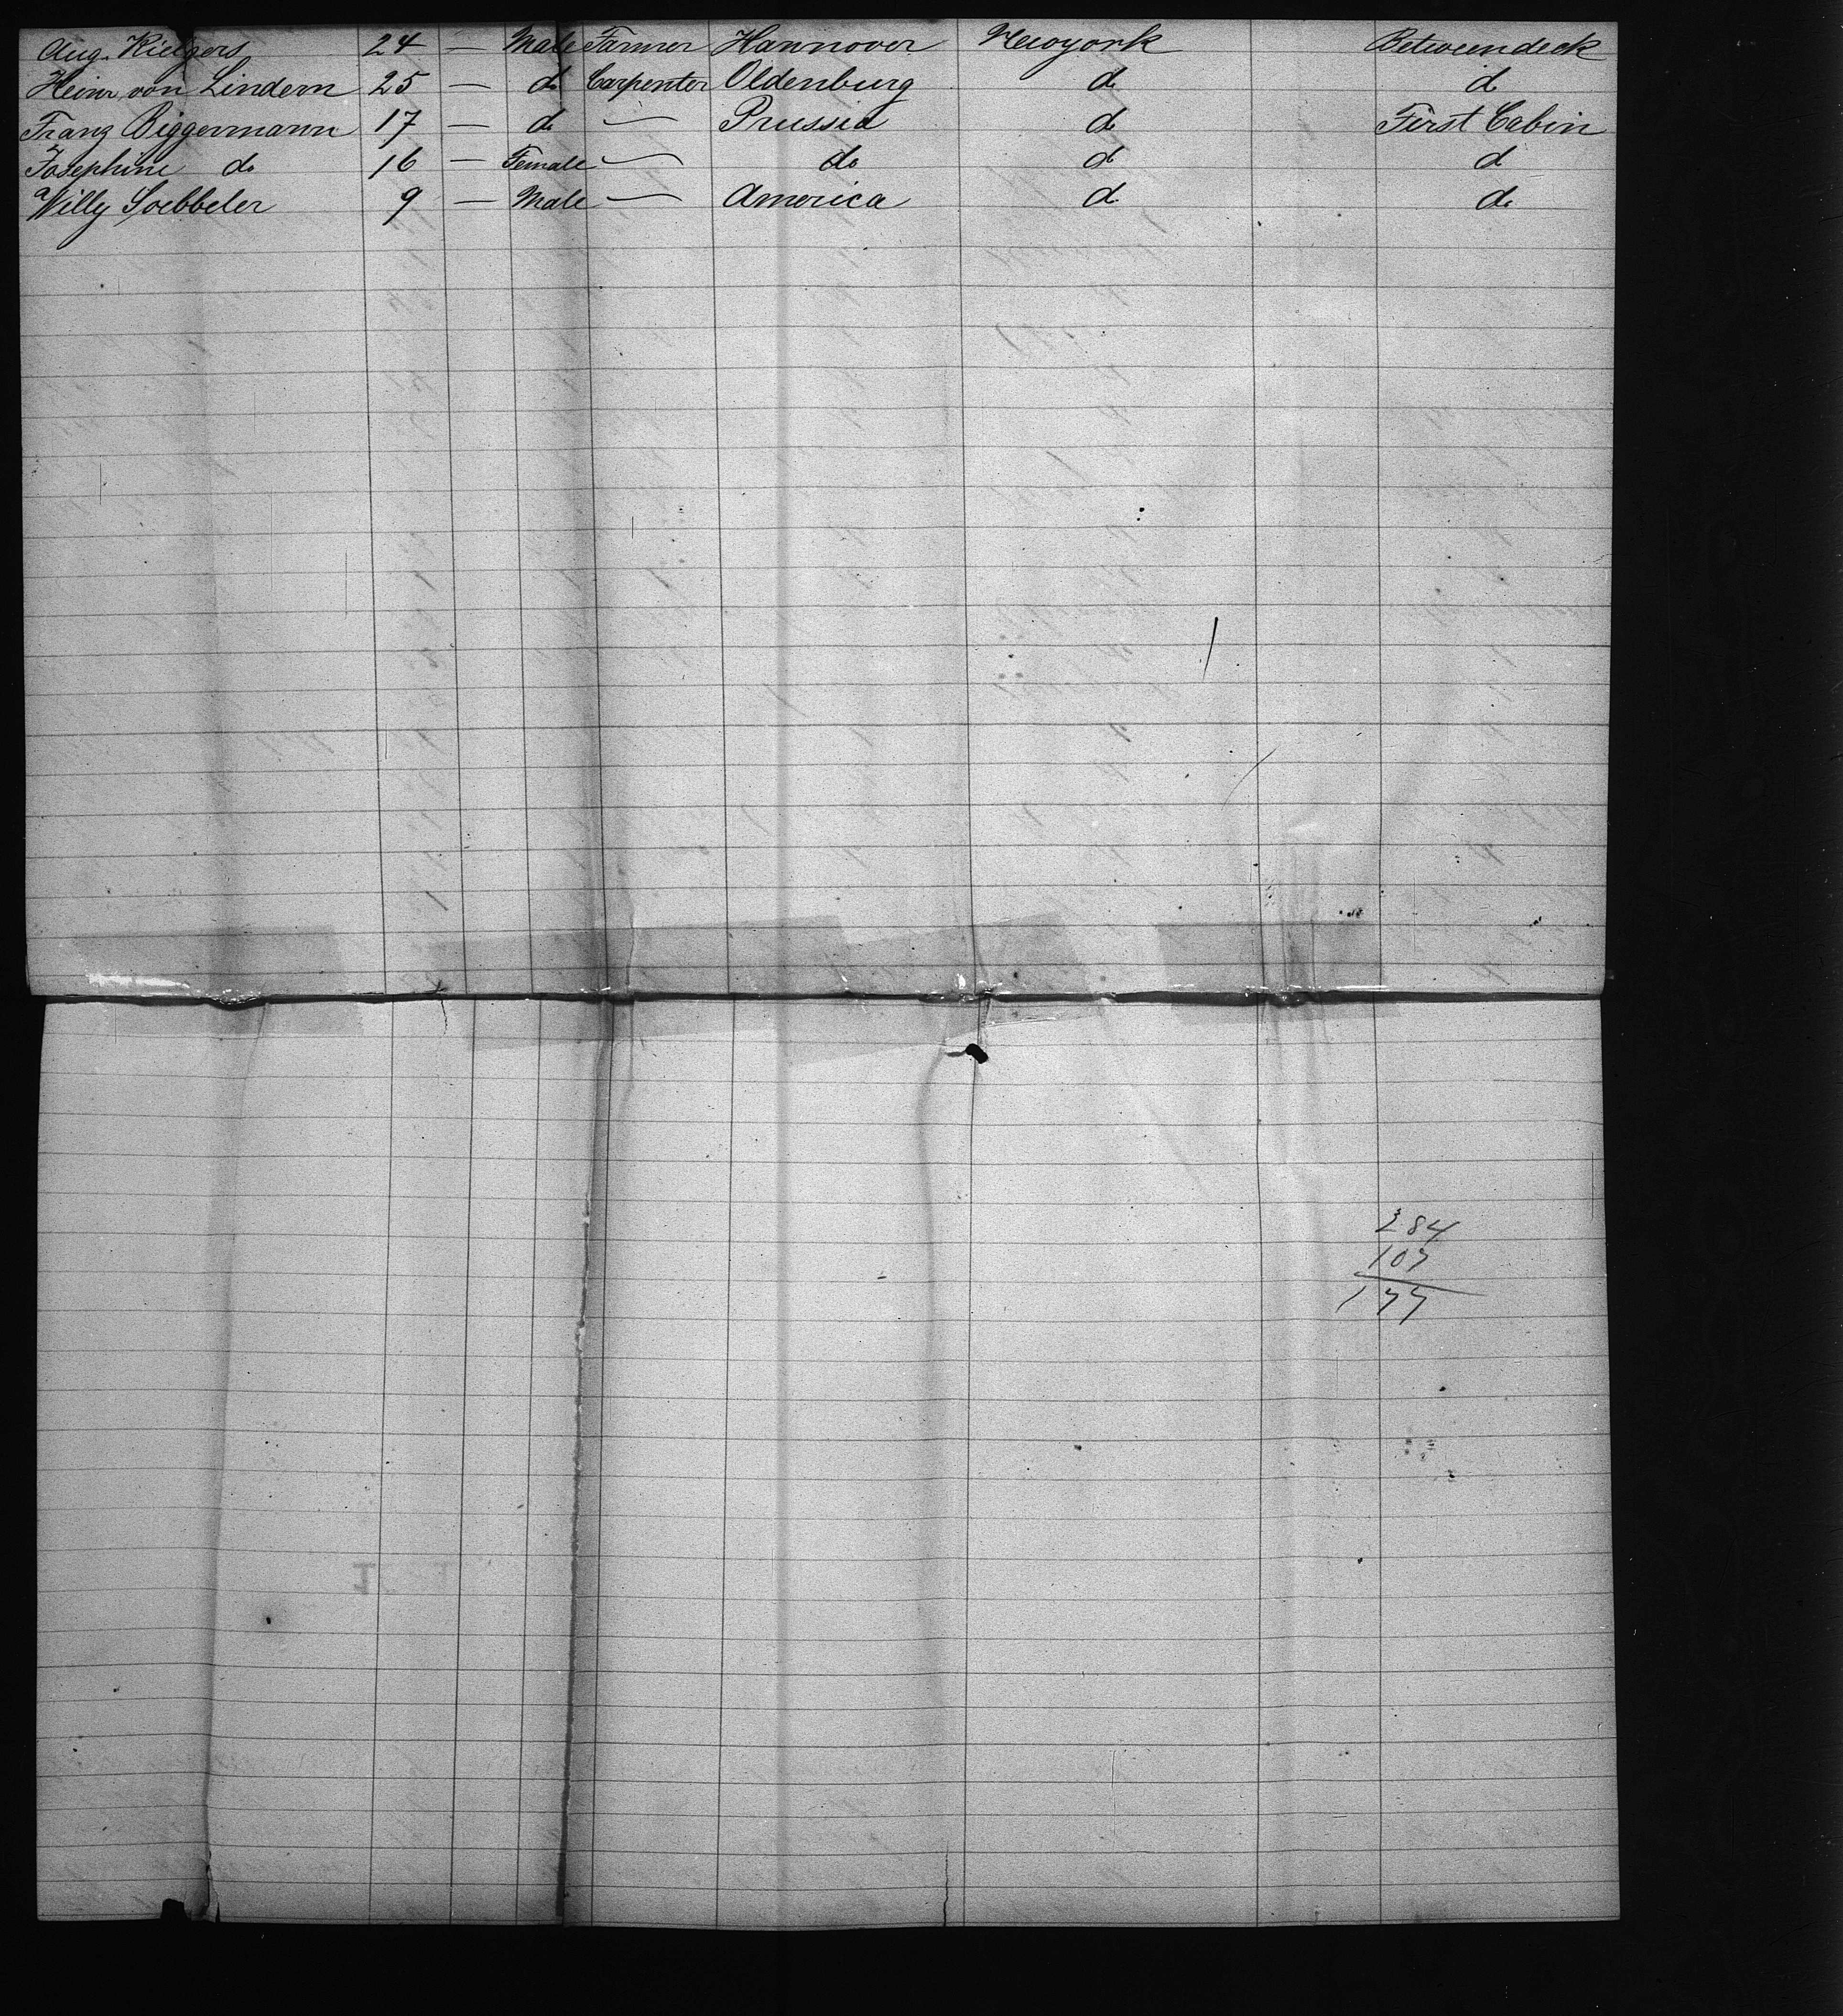 Aug. Rietgers 24 — Male Farmer Hannover Newyork Betweendeck
Heinr von Lindern 25 — do Carpenter Oldenburg do do
Franz Biggermann 17 — do — Prussia do First Cabin
Josephine do 16 — Female — do do do
Willy Soebbeler 9 — Male — America do do
284
107
177